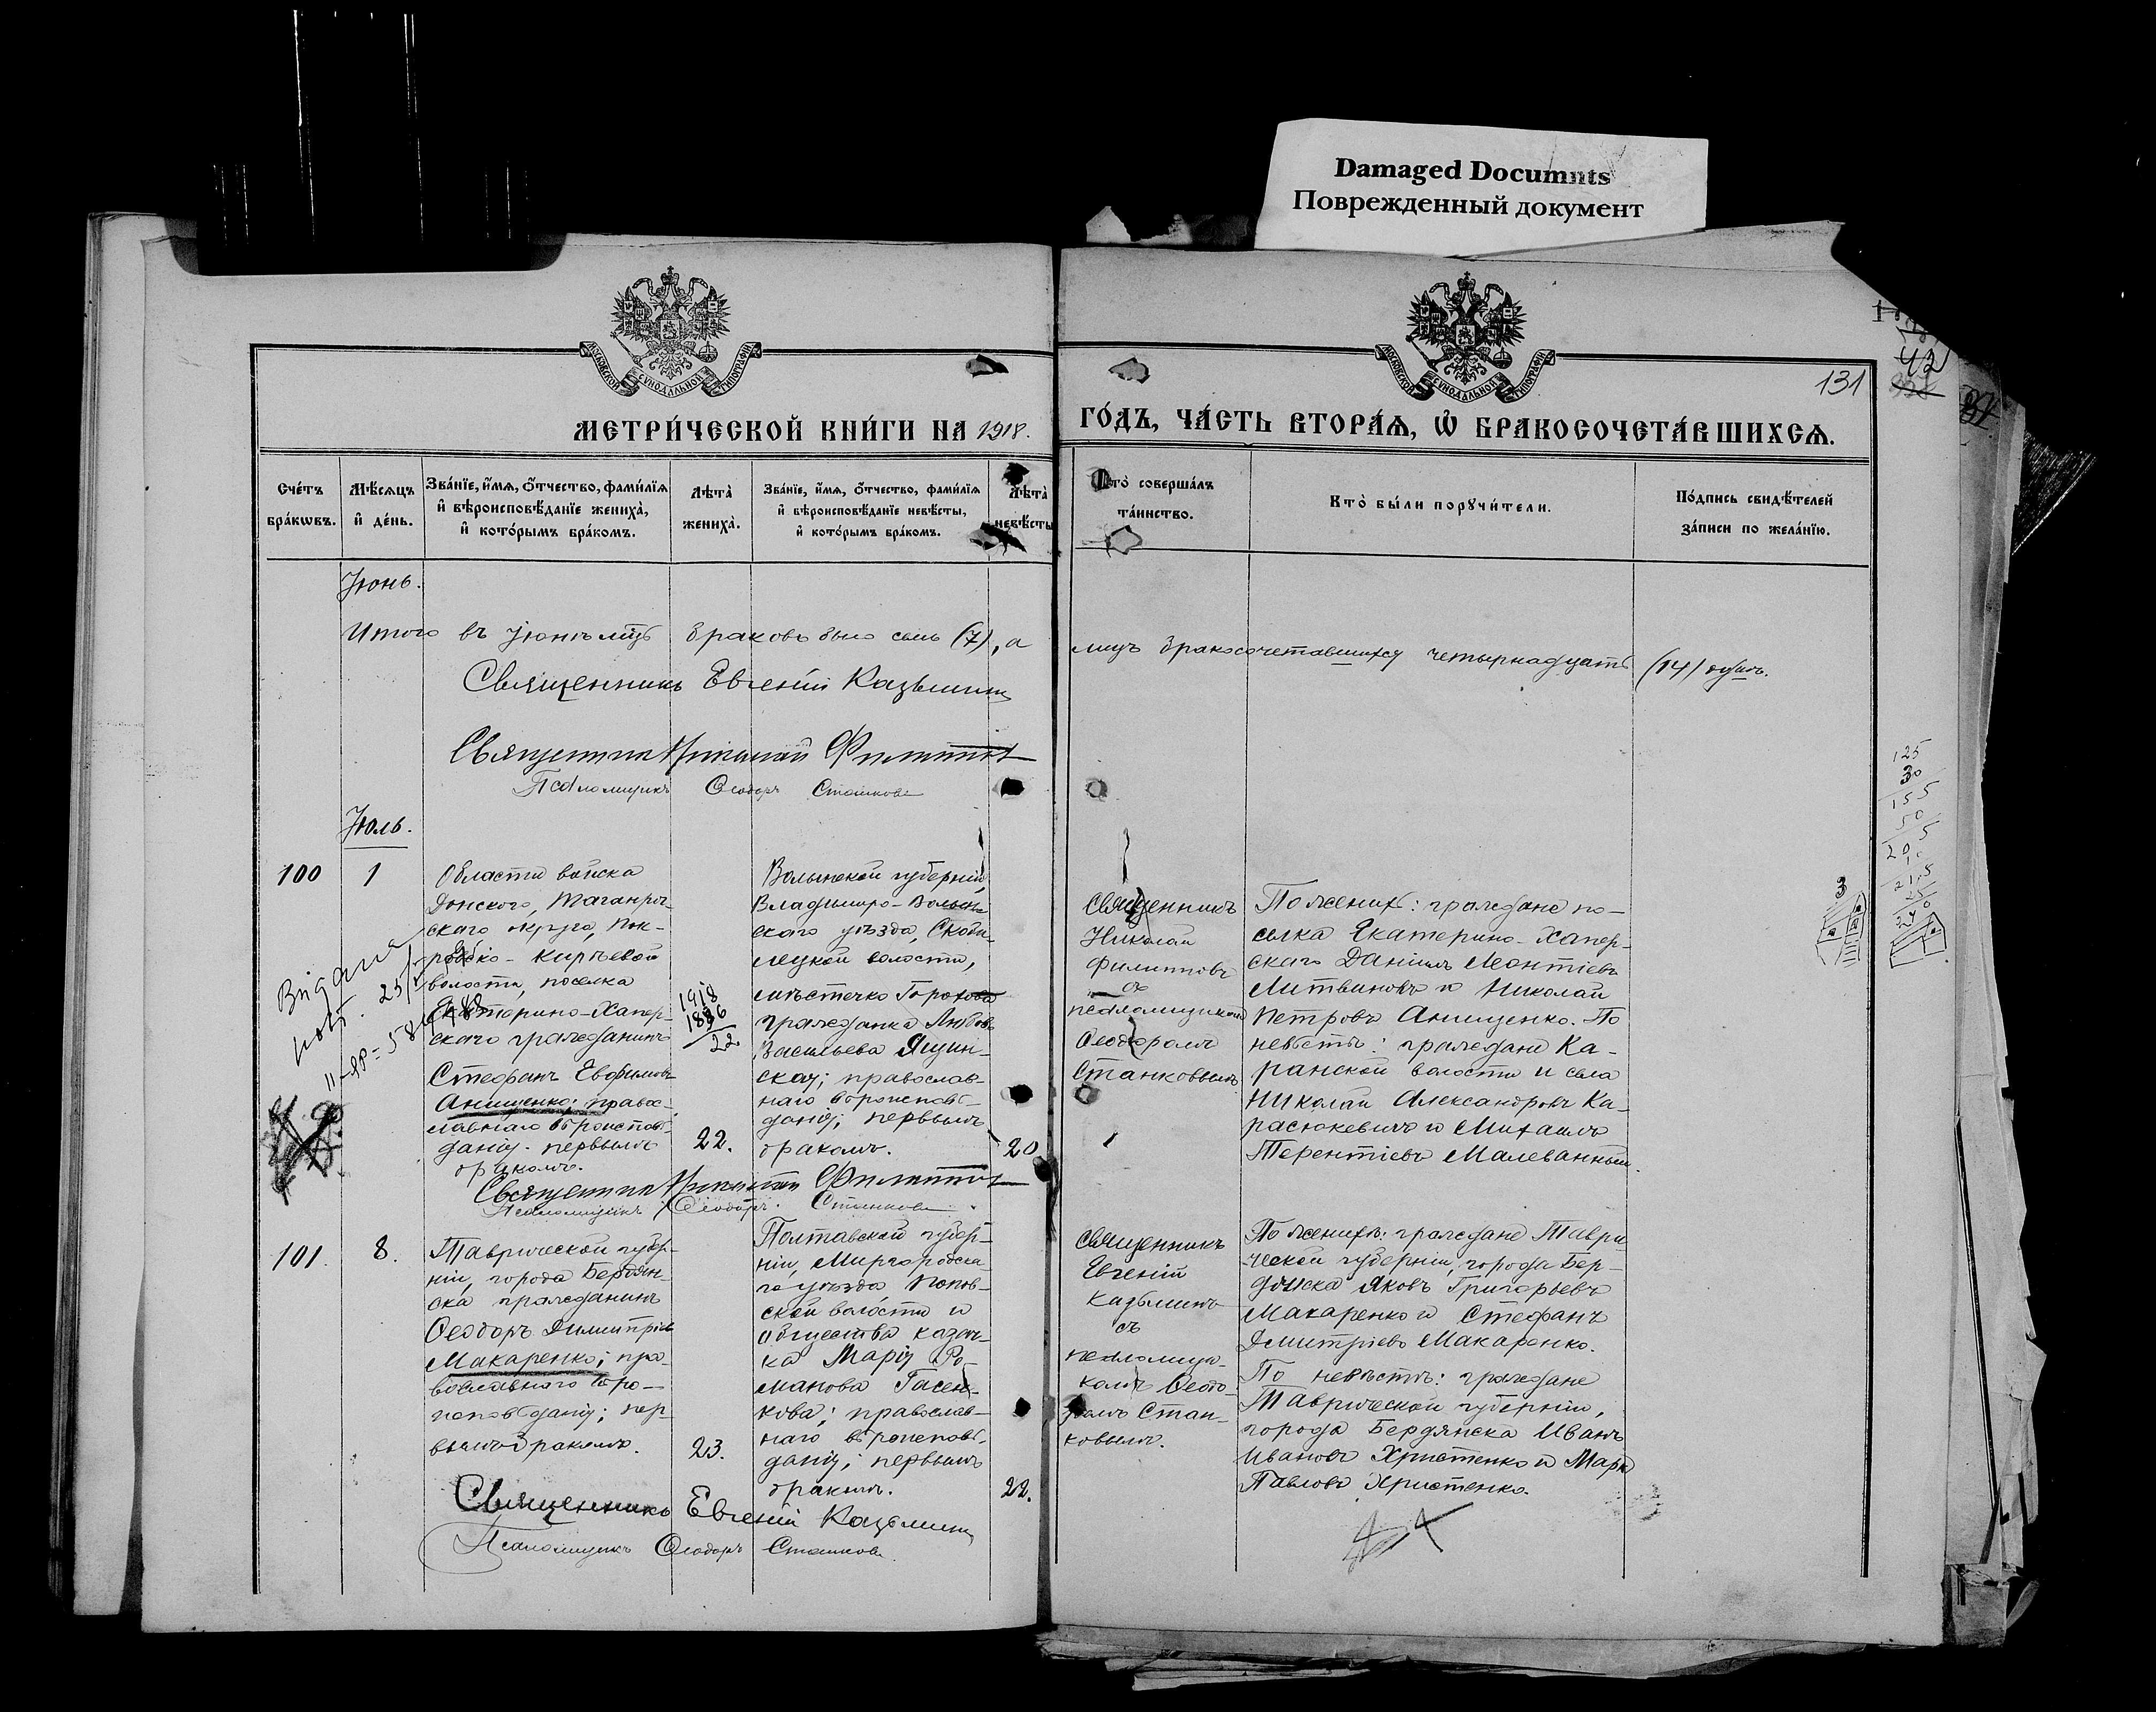 Damaged Documnts
Поврежденный документ
МОСКОВСКОЙ СУНОДАЛЬНОЙ ТИПОГРАФІИ
МОСКОВСКОЙ СУНОДАЛЬНОЙ ТИПОГРАФІИ
131
42
МЕТРИ́ЧЕСКОЙ КНИ́ГИ НА 1918.
ГО́ДЪ, ЧА́СТЬ ВТОРА́Ѧ, Ѽ БРАКОСОЧЕТА́ВШИХСѦ.
Сче́тъ бра́кѡвъ.
Мѣ́сѧцъ и҆ де́нь.
Зва́нїе, и҆́мѧ, ѻ҆́тчество, фами́лїѧ и҆ вѣроисповѣ́данїе жениха̀, и҆ кото́рымъ бра́комъ.
Лѣта̀ жениха̀.
Зва́нїе, и҆́мѧ, ѻ҆́тчество, фами́лїѧ и҆ вѣроисповѣ́данїе невѣ́сты, и҆ кото́рымъ бра́комъ.
Лѣта̀ невѣ́сты
Кто̀ соверша́лъ та́инство.
Кто̀ бы́ли порꙋчи́тели.
По́дпись свидѣ́телей за́писи по жела́нїю.
Іюнь.
Итого въ Іюнѣ мцѣ браковъ было семь (7), а
лицъ бракосочетавшихся четырнадцать (14) душъ.
Священникъ Евгеній Казьминъ
Священникъ Николай Филиппов
Псаломщикъ Ѳеодоръ Станковъ
Іюль.
100
1
Области войска
Донского, Таганрог-
скаго округа, Пок-
ровско-Кирѣевой
волости, поселка
Екатерино-Хапер-
скаго гражданинъ
Стефанъ Евфимовъ
Анищенко; правос-
лавнаго вѣроисповѣ-
данія. первымъ
бракомъ.
1918
1896
22
22.
Волынской губерніи,
Владиміро-Волын-
скаго уѣзда, Скоби-
лецкой волости,
мѣстечко Горохова
гражданка Любовь
Васильева Яцин-
ская; православ-
наго вѣроисповѣ-
данія; первымъ
бракомъ.
20
Священникъ
Николай
Филипповъ
съ
псаломщикомъ
Ѳеодоромъ
Станковымъ
По женихѣ: граждане по-
селка Екатерино-Хапер-
скаго Даніилъ Леонтіевъ
Литвиновъ и Николай
Петровъ Анищенко. По
невѣстѣ: граждане Ка-
ранской волости и села
Николай Александровъ Ка-
расюкевичъ и Михаилъ
Терентіевъ Малеванный.
Священникъ Николай Филиппов
Псаломщикъ Ѳеодоръ Станковъ
101
8.
Таврической губер-
ніи, города Бердян-
ска гражданинъ
Ѳеодоръ Димитріев
Макаренко; пра-
вославнаго вѣро-
исповѣданія; пер-
вымъ бракомъ.
23.
Полтавской губер-
ніи, Миргородска-
го уѣзда Попов-
ской волости и
общества казач-
ка Марія Ро-
манова Гасен-
кова; православ-
наго вѣроисповѣ-
данія; первымъ
бракомъ.
22.
Священникъ
Евгеній
Казьминъ
съ
псаломщи-
комъ Ѳеодо-
ромъ Стан-
ковымъ.
По женихѣ: граждане Таври-
ческой губерніи, города Бер-
дянска Яковъ Григорьевъ
Макаренко и Стефанъ
Дмитріевъ Макаренко.
По невѣстѣ: граждане
Таврической губерніи,
города Бердянска Иванъ
Ивановъ Христенко и Марк
Павловъ Христенко.
Священникъ Евгеній Казьминъ
Псаломщикъ Ѳеодоръ Станковъ
125
30
155
50
205
10
215
25
240
3